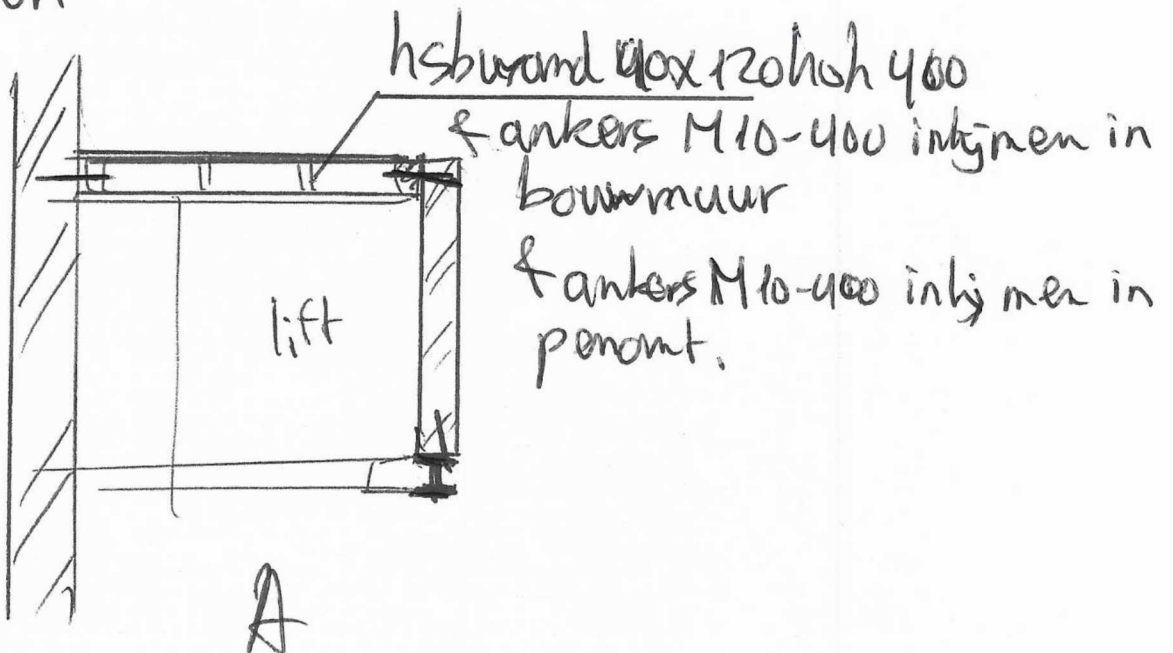 hsbwand 40x120 hoh 400
& ankers M10-400 inlijmen in
bouwmuur
& ankers M10-400 inlijmen in
penant.
lift
A